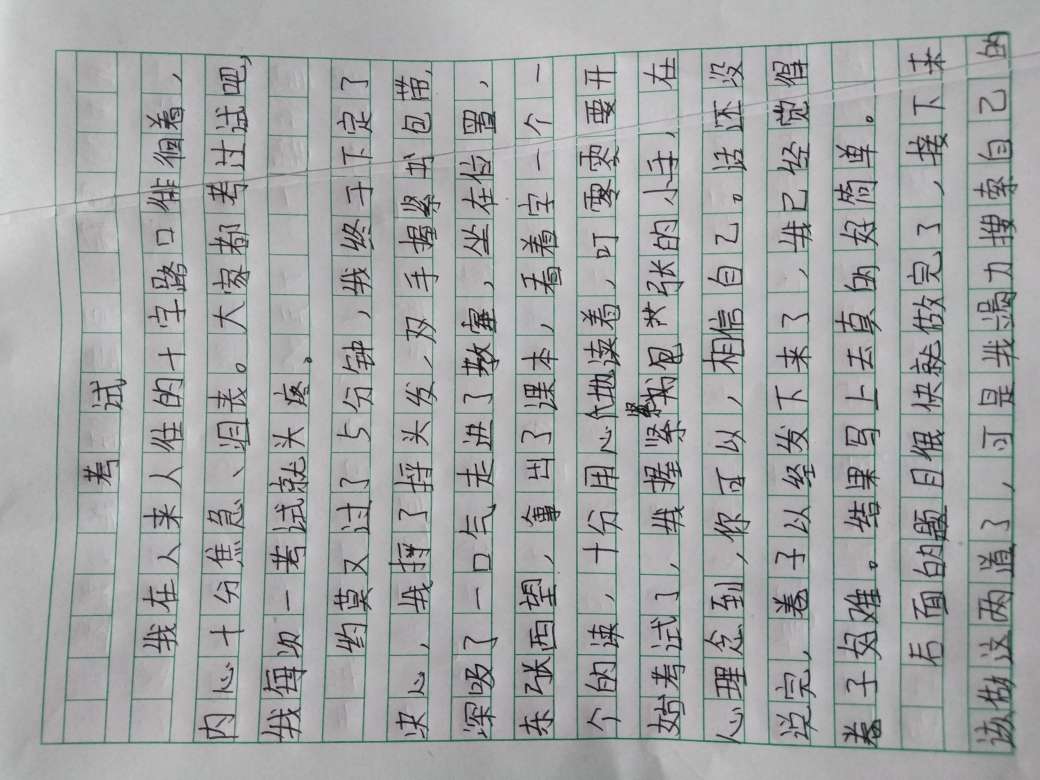 考试
我在人来人往的十字路口徘徊着，
内心十分焦急、沮丧。大家都考过试吧，
我每次一考试就头疼。
约莫又过了5分钟，我终于下定了
决心，我捋了捋头发，双手握紧书包带，
深吸了一口气走进了教室，坐在位置，
东张西望，拿出了课本，看着字一个一
个的读，十分用心地读着，叮零零要开
始考试了，我握紧我的小手，在
心理念到，你可以，相信自己。话还没
说完，卷子以经发下来了，我已经觉得
卷子好难。结果写上去真的好简单。
后面的题目很快就做完了，接下来
该做这两道了，可是我竭力搜索自己的